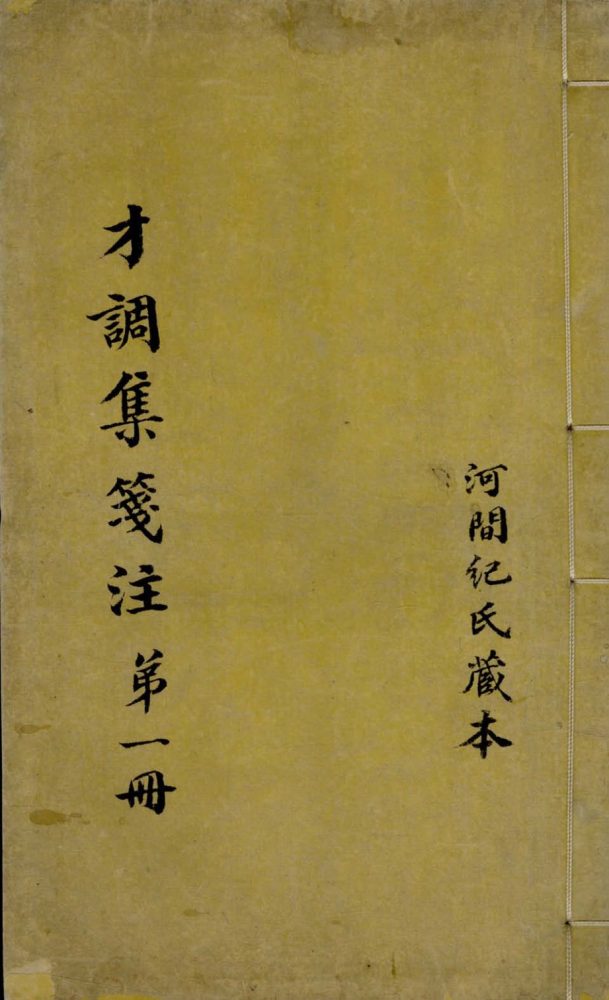 河間紀氏藏本
才調集箋注 弟一冊